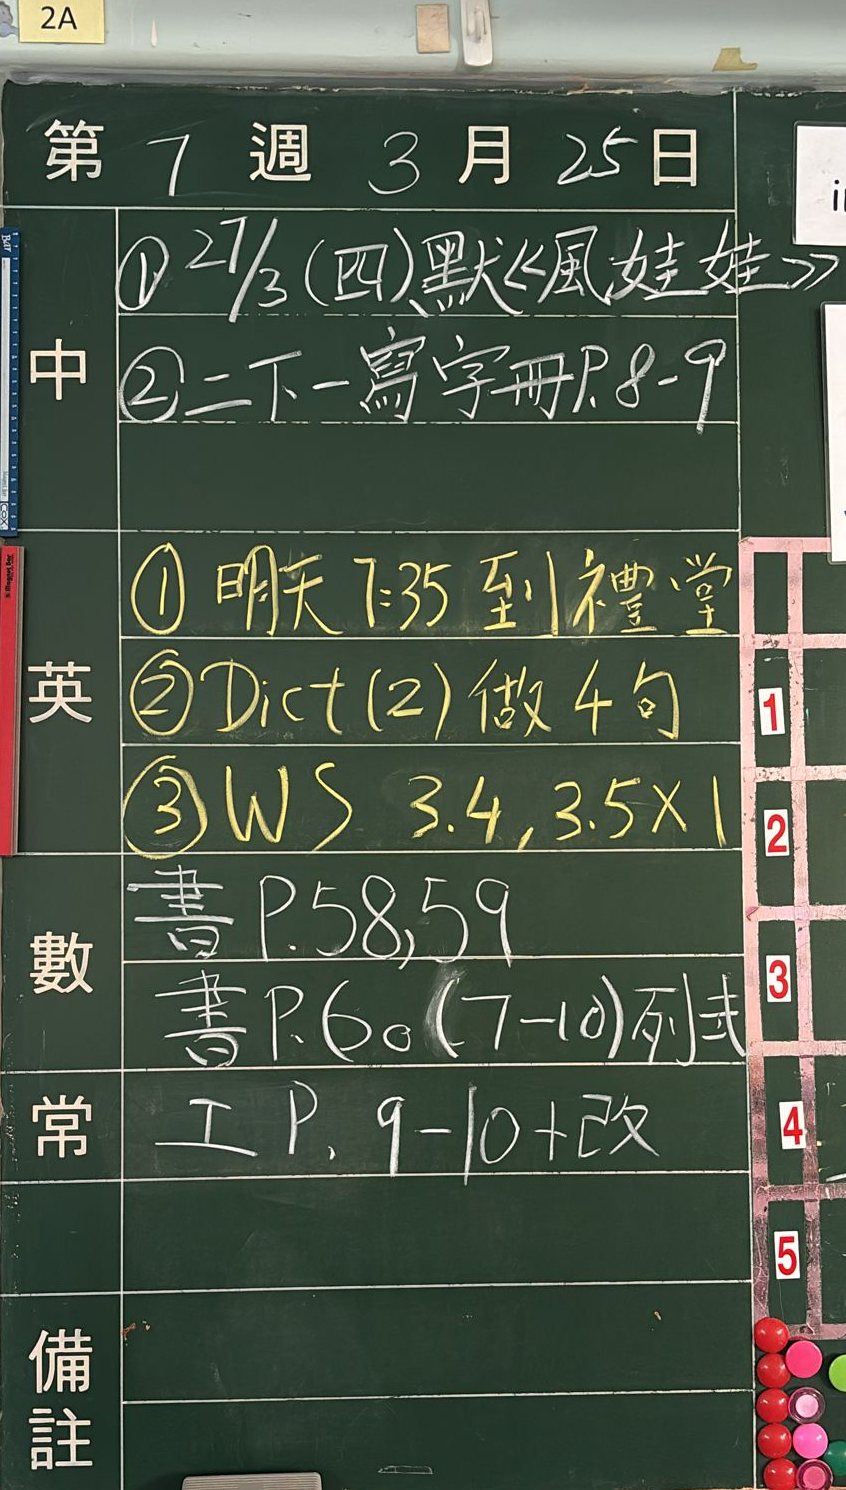 2A
第 7 週 3 月 25 日
中
① 27/3 (四)、默《風娃娃》
② 二下一寫字冊P.8-9
英
① 明天7:35到禮堂
② Dict (2) 做4句
③ WS 3.4, 3.5×1
數
書 P.58,59
書 P.60 (7-10) 列式
常
工 P. 9-10+改
備註
1
2
3
4
5